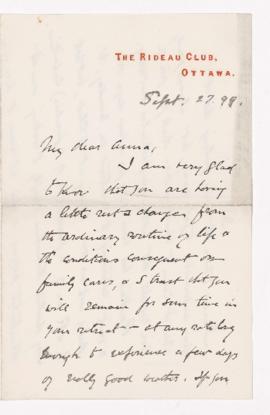 THE RIDEAU CLUB,
OTTAWA.
Sept. 27. 98.
My dear Anna,
I am very glad
to know that you are having
a little rest & change from
the ordinary routine of life &
the conditions consequent on
family cares, & I trust that you
will remain for some time in
your retreat — at any rate long
enough to experience a few days
of really good weather. If you